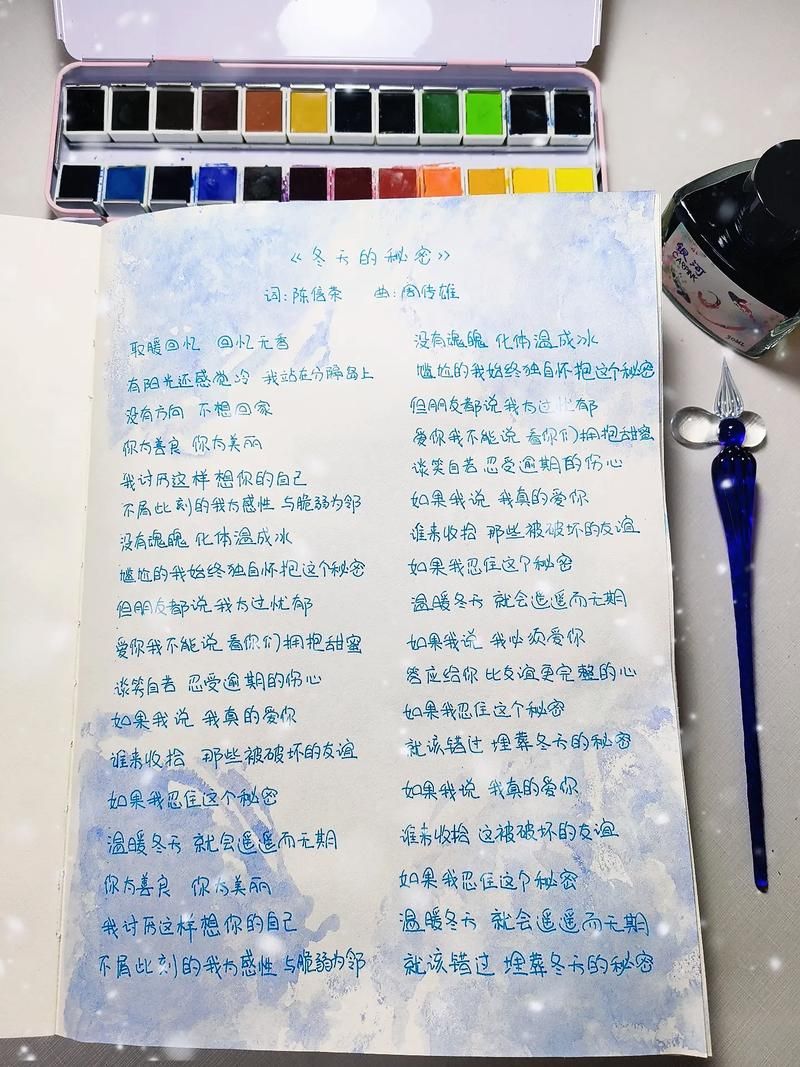 《冬天的秘密》
词:陈信荣 曲:周传雄
取暖回忆 回忆无香
有阳光还感觉冷 我站在分隔岛上
没有方向 不想回家
你太善良 你太美丽
我讨厌这样想你的自己
不屑此刻的我太感性 与脆弱为邻
没有魂魄 化体温成冰
尴尬的我始终独自怀抱这个秘密
但朋友都说我太过忧郁
爱你我不能说 看你们拥抱甜蜜
谈笑自若 忍受逾期的伤心
如果我说 我真的爱你
谁来收拾 那些被破坏的友谊
如果我忍住这个秘密
温暖冬天 就会遥遥而无期
你太善良 你太美丽
我讨厌这样想你的自己
不屑此刻的我太感性 与脆弱为邻
没有魂魄 化体温成冰
尴尬的我始终独自怀抱这个秘密
但朋友都说我太过忧郁
爱你我不能说 看你们拥抱甜蜜
谈笑自若 忍受逾期的伤心
如果我说 我真的爱你
谁来收拾 那些被破坏的友谊
如果我忍住这个秘密
温暖冬天 就会遥遥而无期
如果我说 我必须爱你
答应给你 比友谊更完整的心
如果我忍住这个秘密
就该错过 埋葬冬天的秘密
如果我说 我真的爱你
谁来收拾 这被破坏的友谊
如果我忍住这个秘密
温暖冬天 就会遥遥而无期
就该错过 埋葬冬天的秘密
银河
30ML